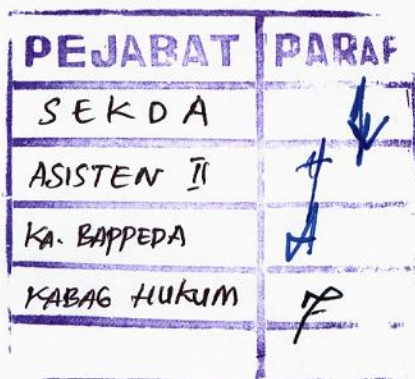 PEJABAT PARAF
SEKDA
ASISTEN II
KA. BAPPEDA
KABAG HUKUM